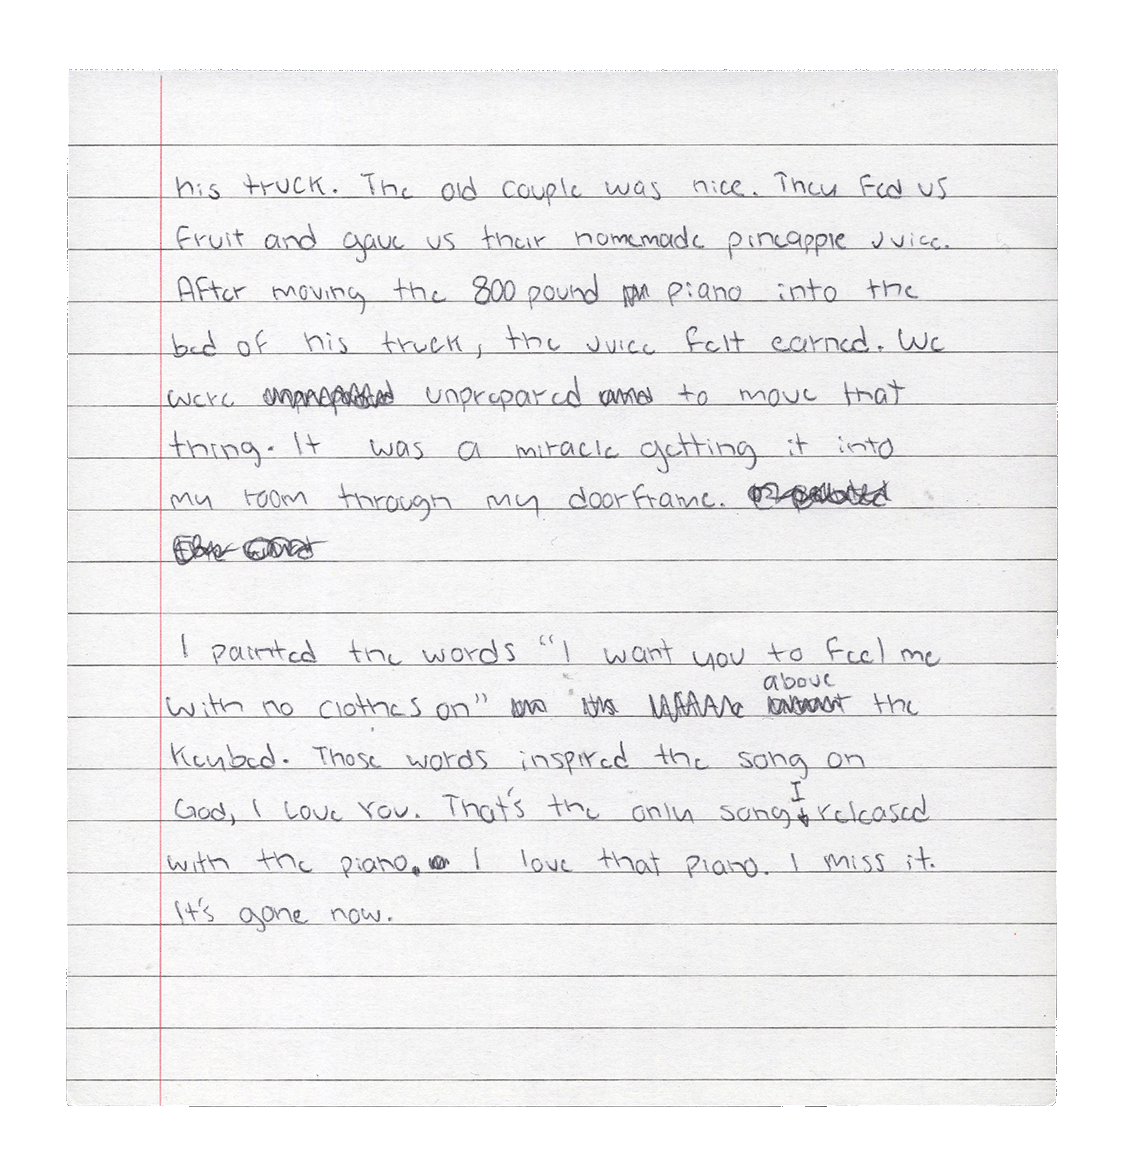 his truck. The old couple was nice. They fed us
fruit and gave us their homemade pineapple juice.
After moving the 800 pound piano into the
bed of his truck, the juice felt earned. We
were unprepared to move that
thing. It was a miracle getting it into
my room through my doorframe.
I painted the words “I want you to feel me
with no clothes on” above the
Keybed. Those words inspired the song on
God, I Love You. That's the only song I released
with the piano. I love that piano. I miss it.
It's gone now.